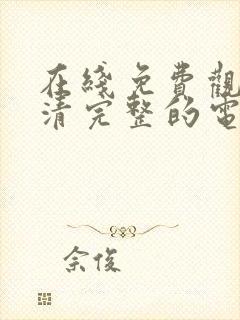 在綫免費觀
清完整的電
佘俊